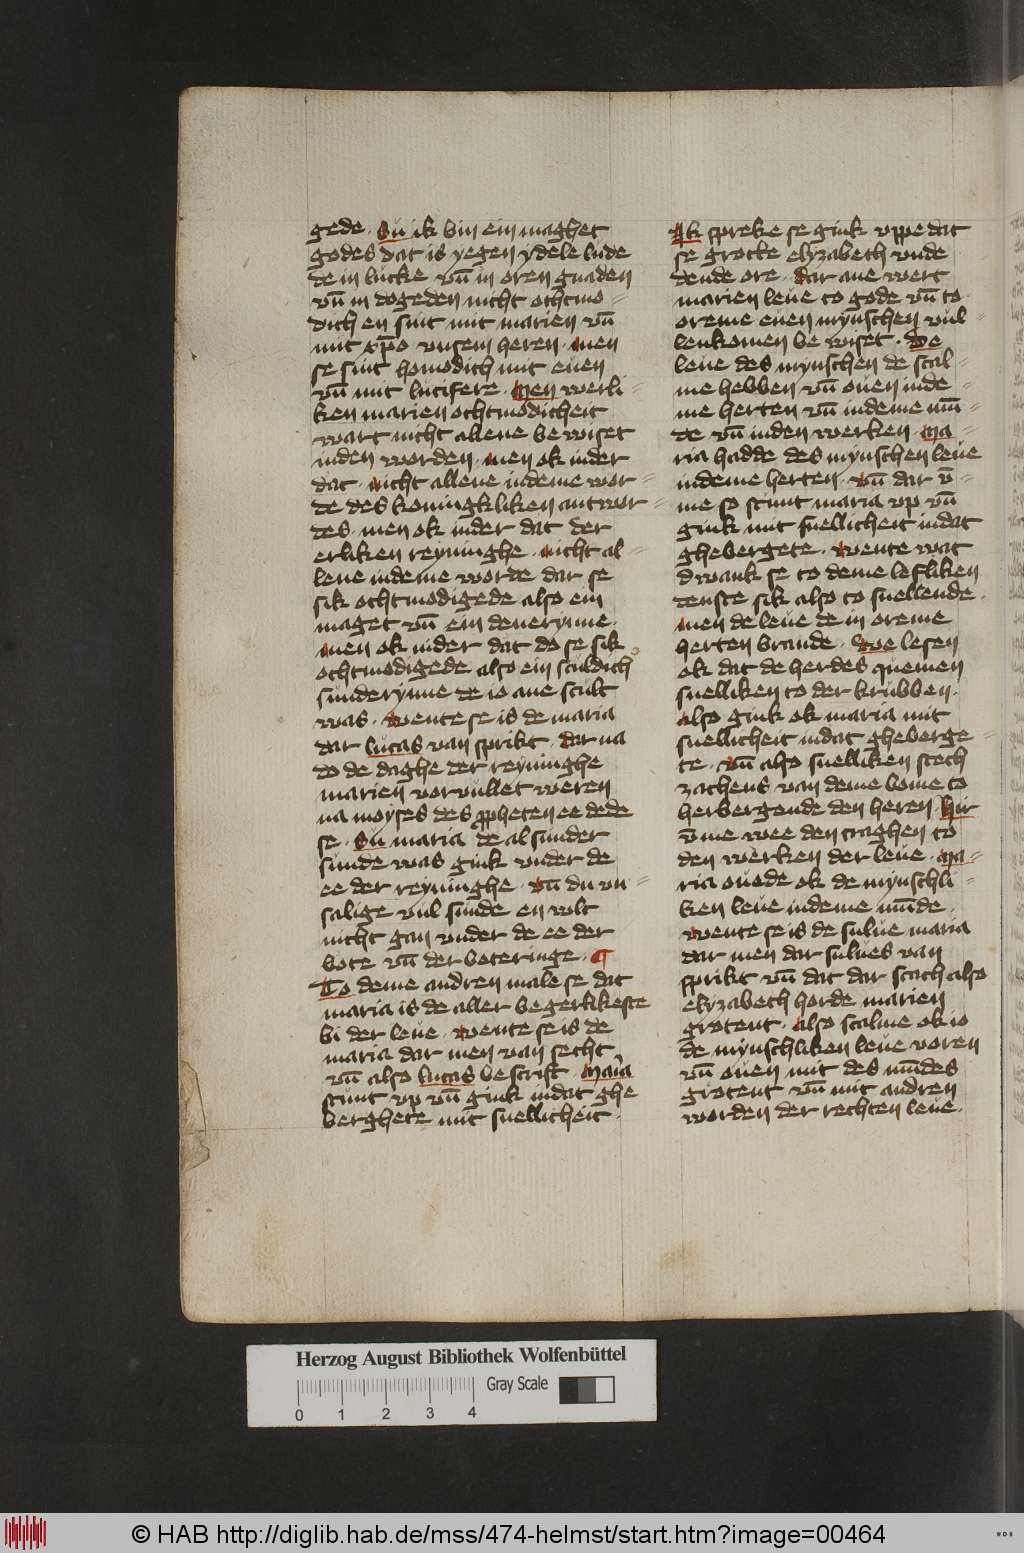 gede. Su ik bin ein maghet
godes dat is yegen ydele lude
de in lucke vn̄ in oren gnaden
vn̄ in dogeden nicht othmo=
dich en sint mit marien vn̄
mit xp̄o vnsem heren. Men
se sint homodich mit euen
vn̄ mit lucifere. Men werli=
ken marien othmodicheit
wart nicht allene be wiset
inden worden. Men ok inder
dat. Nicht allene indeme wor=
de des koningkliken antwor=
des. men ok inder dat der
erliken reyninghe. Nicht al=
lene indeme worde dar se
sik othmodigede also ein
maget vn̄ ein denerynne.
Men ok inder dat do se sik
othmodigede also ein sculdich
sunderynne de io ane scult
was. Wente se is de maria
dar lucas van sprikt. dar na
do de daghe der reyninghe
marien vorvullet weren
na moyses des ꝓpheten ee dede
se. Su maria de al sunder
sunde was gink vnder de
ee der reyninghe. Vn̄ du vn=
salige vul sunde en wolt
nicht gan vnder de ee der
bote vn̄ der beteringe. ¶
To deme andren male se dat
maria is de aller begerlikeste
bi der leue. Wente se is de
maria dar men van secht
vn̄ also lucas bescrift Maīa
stunt vp vn̄ gink indat ghe
berghete mit snellicheit.
Ik spreke se gink vppe dat
se grotte elyzabeth vnde
dende ore. dar ane wert
marien leue to gode vn̄ to
oreme euen mynschen vul=
lenkomen be wiset. We
leue des mynschen de scal=
me hebben vn̄ ouen inde=
me herten vn̄ indeme mū=
de vn̄ inden werken. Ma=
ria hadde des mynschen leue
indeme herten. Vn̄ dar v̄=
me so stunt maria vp vn̄
gink mit snellicheit indat
ghebergete. Wente wat
dwank se to deme lefliken
denste sik also to snellende.
Men de leue de in oreme
herten brande. We lesen
ok dat de herdes quemen
snelliken to der krubben.
Also gink ok maria mit
snellicheit indat gheberge=
te. Vn̄ also snelliken stech
zacheus van deme bome to
herbergende den heren. Hir
v̄me wee den traghen to
den werken der leue. Ma=
ria ouede ok de mynschli=
ken leue indeme mūde.
Wente se is de sulue maria
dar men dar sulues van
sprikt vn̄ dat dar scach also
elyzabeth horde marien
grotent. Also scalme ok io
de mynschliken leue voren
vn̄ ouen mit des mūdes
grotent vn̄ mit andren
worden der rechten leue.
Herzog August Bibliothek Wolfenbüttel
Gray Scale
0 1 2 3 4
© HAB http://diglib.hab.de/mss/474-helmst/start.htm?image=00464